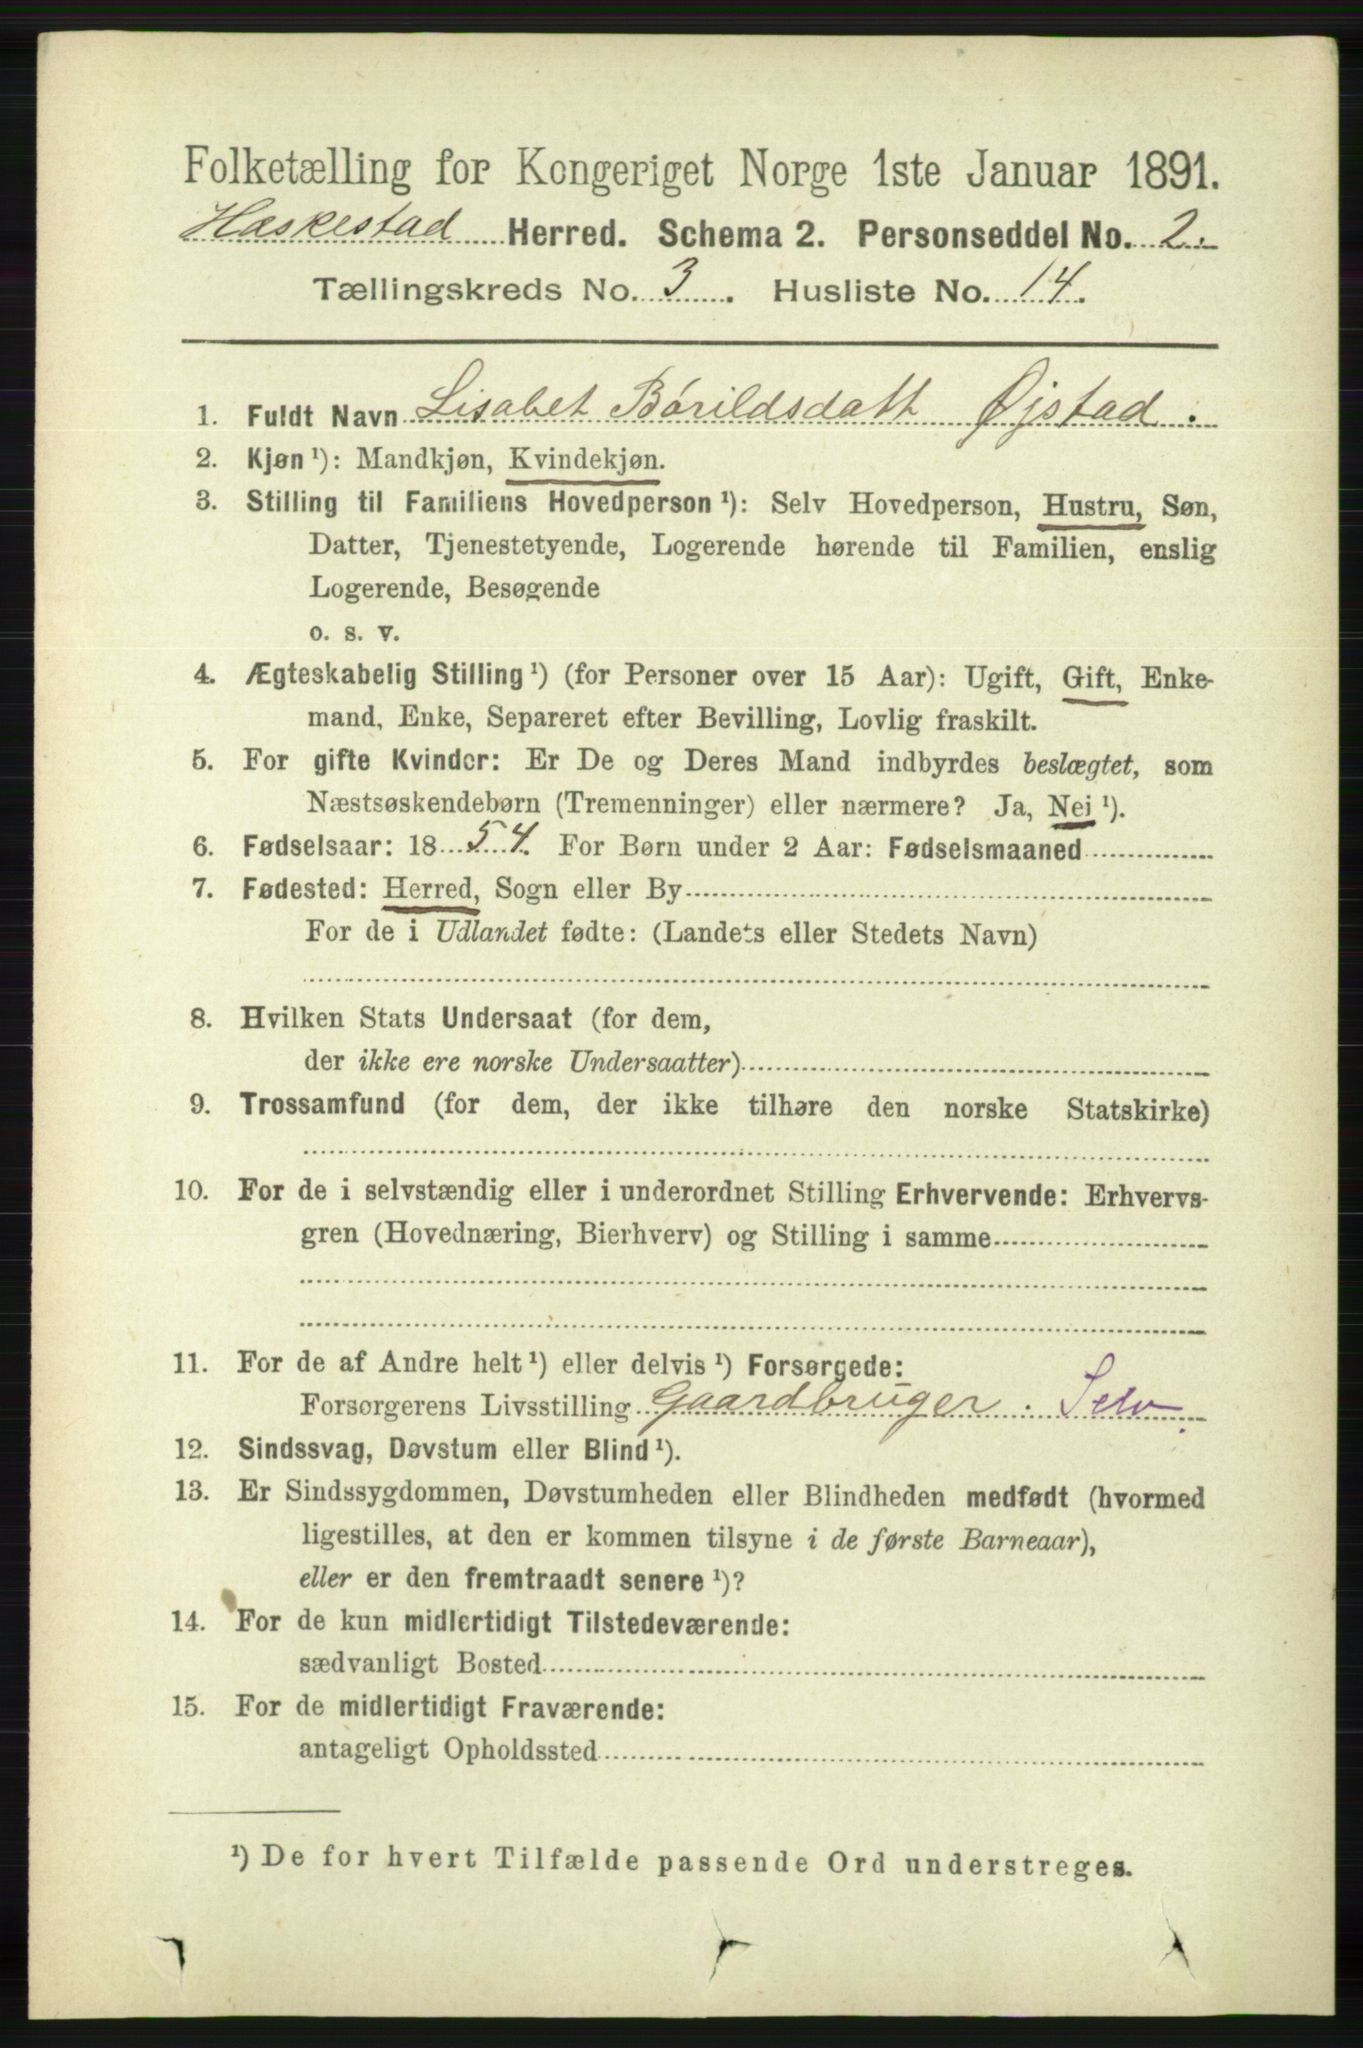 Folketælling for Kongeriget Norge 1ste Januar 1891.
Heskestad Herred. Schema 2. Personseddel No. 2.
Tællingskreds No. 3. Husliste No. 14.
1. Fuldt Navn Lisabet Bórildsdatt Øjstad.
2. Kjøn ¹): Mandkjøn, Kvindekjøn.
3. Stilling til Familiens Hovedperson ¹): Selv Hovedperson, Hustru, Søn,
Datter, Tjenestetyende, Logerende hørende til Familien, enslig
Logerende, Besøgende
o. s. v.
4. Ægteskabelig Stilling ¹) (for Personer over 15 Aar): Ugift, Gift, Enke-
mand, Enke, Separeret efter Bevilling, Lovlig fraskilt.
5. For gifte Kvinder: Er De og Deres Mand indbyrdes beslægtet, som
Næstsøskendebørn (Tremenninger) eller nærmere? Ja, Nei ¹).
6. Fødselsaar: 1854. For Børn under 2 Aar: Fødselsmaaned
7. Fødested: Herred, Sogn eller By
For de i Udlandet fødte: (Landets eller Stedets Navn)
8. Hvilken Stats Undersaat (for dem,
der ikke ere norske Undersaatter)
9. Trossamfund (for dem, der ikke tilhøre den norske Statskirke)
10. For de i selvstændig eller i underordnet Stilling Erhvervende: Erhvervs-
gren (Hovednæring, Bierhverv) og Stilling i samme
11. For de af Andre helt ¹) eller delvis ¹) Forsørgede:
Forsørgerens Livsstilling Gaardbruger. Selv
12. Sindssvag, Døvstum eller Blind ¹).
13. Er Sindssygdommen, Døvstumheden eller Blindheden medfødt (hvormed
ligestilles, at den er kommen tilsyne i de første Barneaar),
eller er den fremtraadt senere ¹)?
14. For de kun midlertidigt Tilstedeværende:
sædvanligt Bosted
15. For de midlertidigt Fraværende:
antageligt Opholdssted
¹) De for hvert Tilfælde passende Ord understreges.